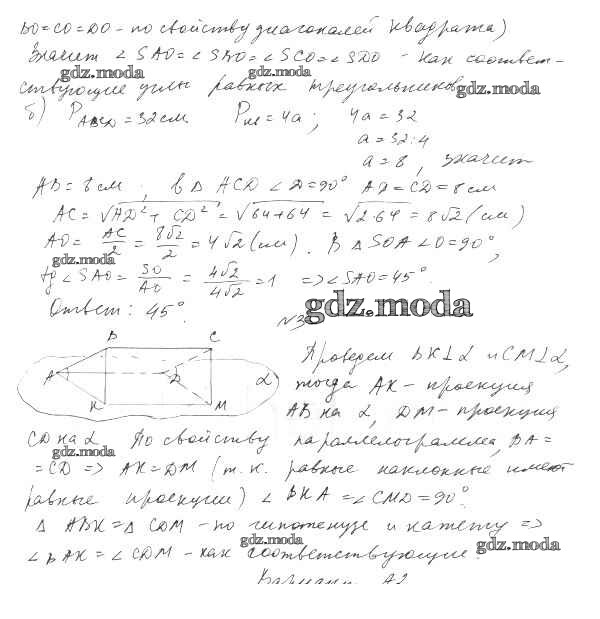 ВО=СО=DO - по свойству диагоналей квадрата)
Значит ∠SAO=∠SBO=∠SCO=∠SDO - как соответ-
gdz.moda gdz.moda
ствующие углы равных треугольников
gdz.moda
б) P_ABCD = 32 см P_кв = 4a; 4a = 32
a = 32:4
a = 8, значит
AB = 8 см, в △ ACD ∠D=90° AD=CD=8 см
AC = √(AD² + CD²) = √(64+64) = √(2·64) = 8√2 (см)
AO = AC/2 = 8√2/2 = 4√2 (см). В △ SOA ∠O=90°,
gdz.moda
tg∠SAO = SO/AO = 4√2/4√2 = 1 => ∠SAO=45°.
Ответ: 45°.
gdz.moda
N3
B C
A D α
K M
Проведем BK⊥α и CM⊥α,
тогда AK - проекция
AB на α, DM - проекция
CD на α По свойству параллелограмма, BA =
gdz.moda
= CD => AK=DM (т.к. равные наклонные имеют
равные проекции) ∠BKA = ∠CMD = 90°.
△ ABK = △ CDM - по гипотенузе и катету =>
gdz.moda
∠BAK = ∠CDM - как соответствующие.
gdz.moda
Вариант А2